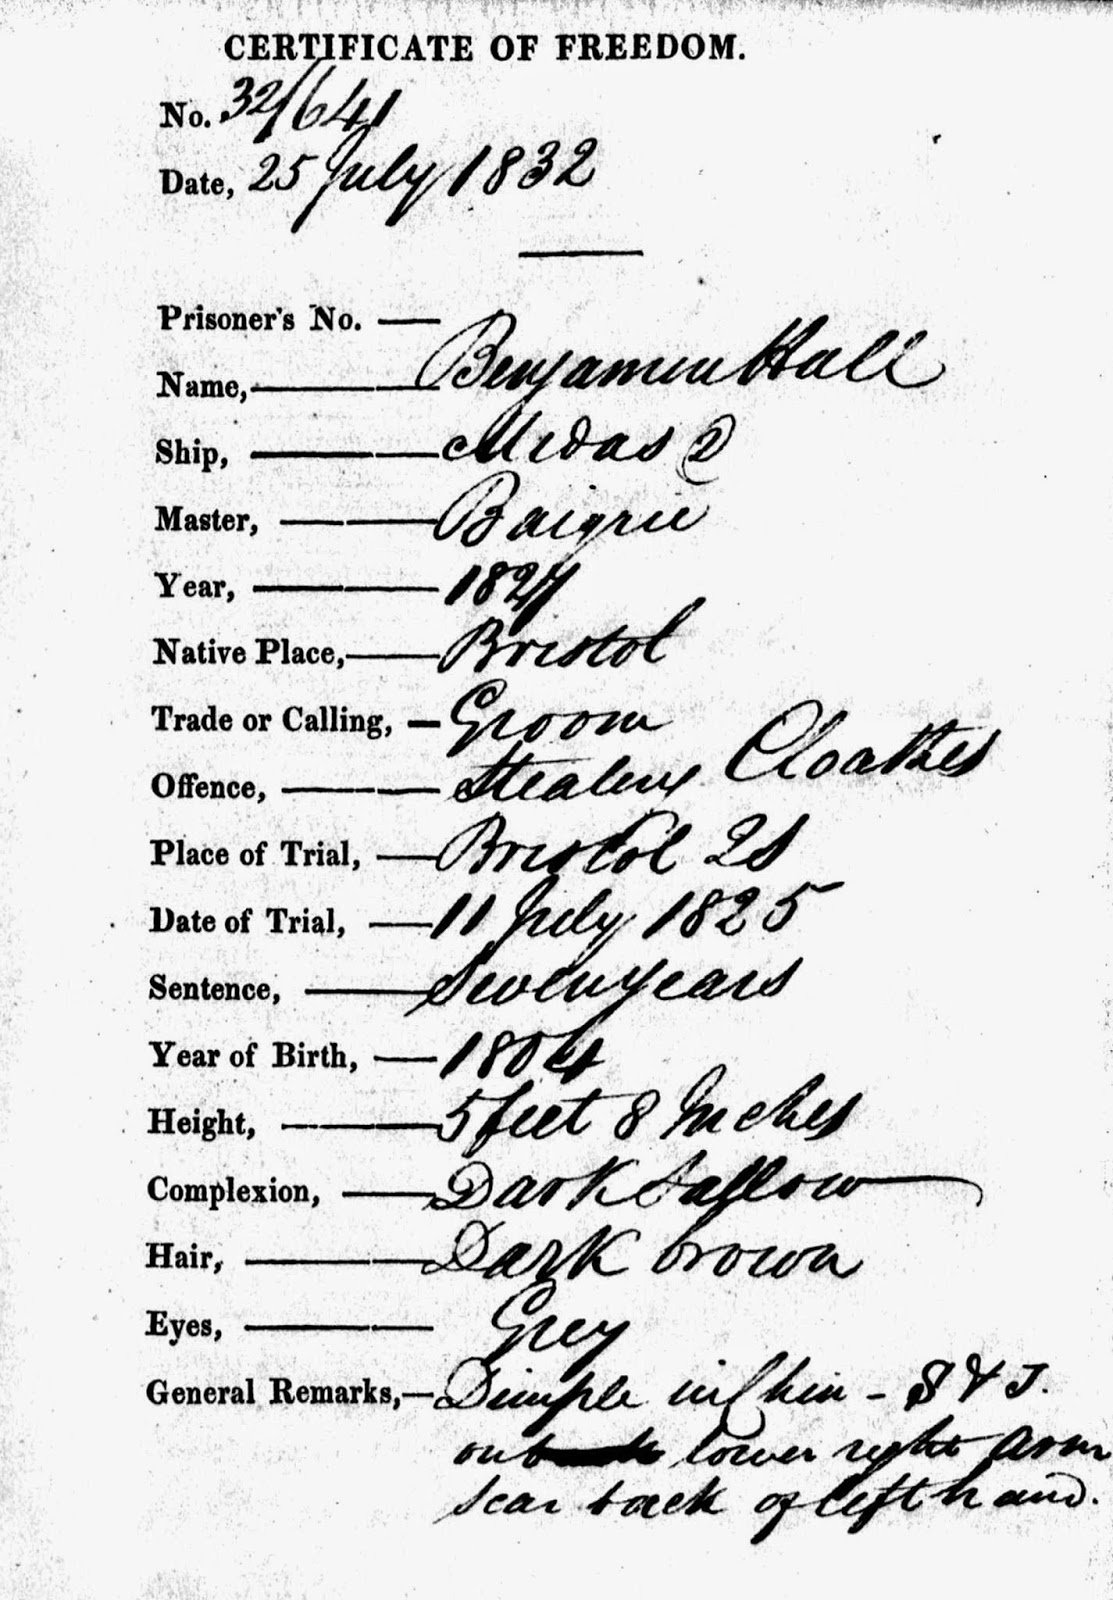 CERTIFICATE OF FREEDOM.
No. 32/641
Date, 25 July 1832
Prisoner's No.
Name, Benjamin Hall
Ship, Midas 2
Master, Baigrie
Year, 1827
Native Place, Bristol
Trade or Calling, Groom
Offence, Stealing Cloathes
Place of Trial, Bristol 2S
Date of Trial, 11 July 1825
Sentence, Seven years
Year of Birth, 1804
Height, 5 feet 8 Inches
Complexion, Dark Sallow
Hair, Dark brown
Eyes, Grey
General Remarks, Dimple in Chin -
lower right arm
scar back of left hand.